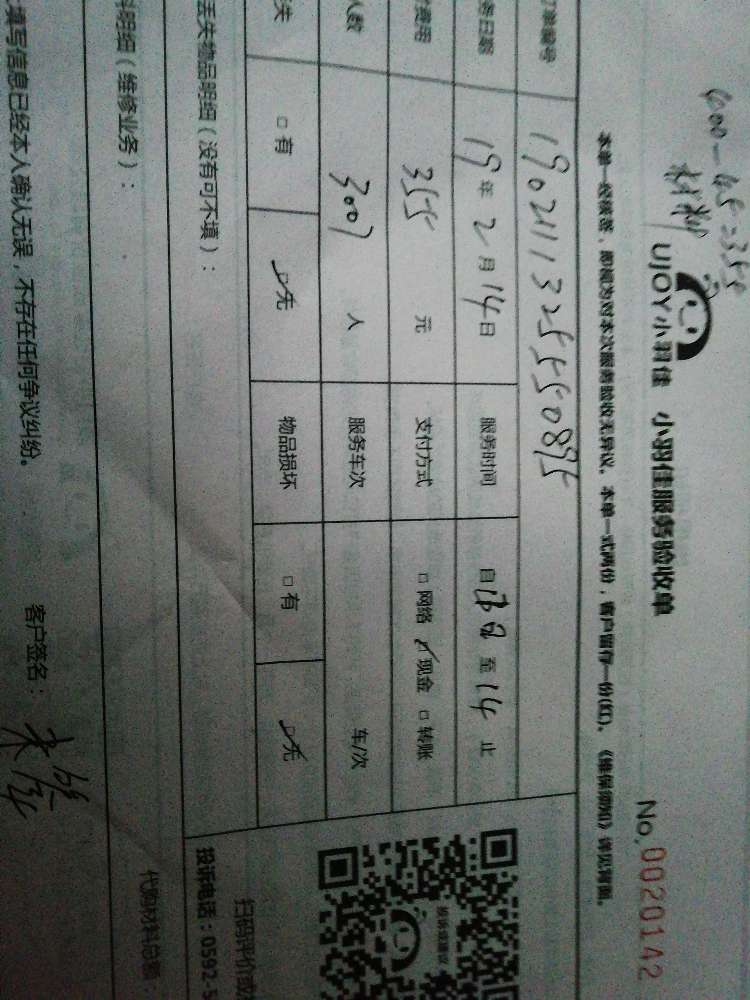 UJOY小羽佳 小羽佳服务验收单
No.0020142
本单一经签署，即视为对本次服务验收无异议。本单一式两份，客户留存一份(红)。《维保须知》详见背面。
订单编号
务日期 19年2月14日 服务时间 自 至14止
费用 355元 支付方式 □网络 ☑现金 □转账
人数 人 服务车次 车/次
失 □有 ☑无 物品损坏 □有 ☑无
丢失物品明细（没有可不填）：
扫码评价或
投诉电话：0592-5
料明细（维修业务）：
代购材料总额：
填写信息已经本人确认无误，不存在任何争议纠纷。 客户签名：